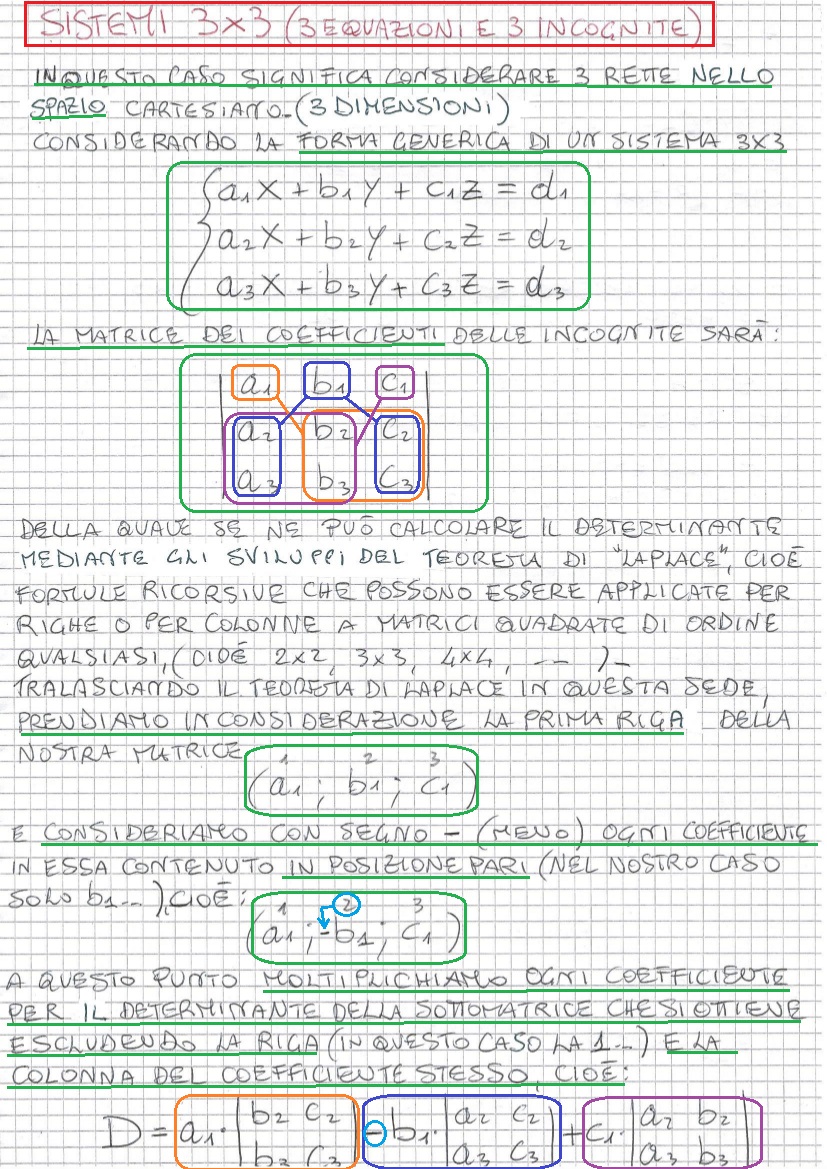 SISTEMI 3X3 (3 EQUAZIONI E 3 INCOGNITE)
IN QUESTO CASO SIGNIFICA CONSIDERARE 3 RETTE NELLO
SPAZIO CARTESIANO.(3 DIMENSIONI)
CONSIDERANDO LA FORMA GENERICA DI UN SISTEMA 3X3
a₁X + b₁Y + c₁Z = d₁
a₂X + b₂Y + c₂Z = d₂
a₃X + b₃Y + c₃Z = d₃
LA MATRICE DEI COEFFICIENTI DELLE INCOGNITE SARÀ:
a₁ b₁ c₁
a₂ b₂ c₂
a₃ b₃ c₃
DELLA QUALE SE NE PUÒ CALCOLARE IL DETERMINANTE
MEDIANTE GLI SVILUPPI DEL TEOREMA DI "LAPLACE", CIOÈ
FORMULE RICORSIVE CHE POSSONO ESSERE APPLICATE PER
RIGHE O PER COLONNE A MATRICI QUADRATE DI ORDINE
QUALSIASI, (CIOÈ 2X2, 3X3, 4X4, -- )-
TRALASCIANDO IL TEOREMA DI LAPLACE IN QUESTA SEDE,
PRENDIAMO IN CONSIDERAZIONE LA PRIMA RIGA DELLA
NOSTRA MATRICE
1 2 3
(a₁ ; b₁ ; c₁)
E CONSIDERIAMO CON SEGNO - (MENO) OGNI COEFFICIENTE
IN ESSA CONTENUTO IN POSIZIONE PARI (NEL NOSTRO CASO
SOLO b₁--), CIOÈ:
1 2 3
(a₁ ; -b₁ ; c₁)
A QUESTO PUNTO MOLTIPLICHIAMO OGNI COEFFICIENTE
PER IL DETERMINANTE DELLA SOTTOMATRICE CHE SI OTTIENE
ESCLUDENDO LA RIGA (IN QUESTO CASO LA 1--) E LA
COLONNA DEL COEFFICIENTE STESSO, CIOÈ:
b₂ c₂ a₂ c₂ a₂ b₂
D = a₁· - b₁· + c₁·
b₃ c₃ a₃ c₃ a₃ b₃